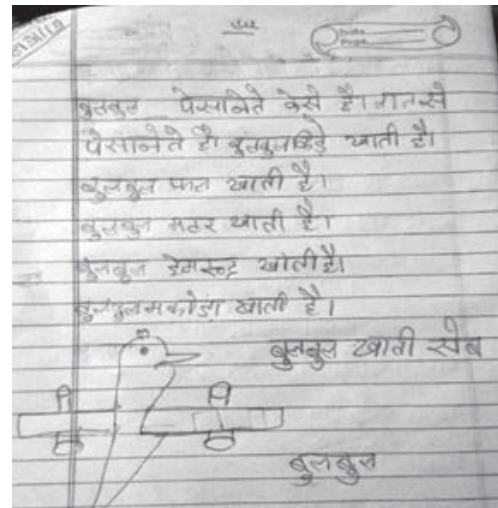 बुलबुल पेसानेते केसे है। लालसे
पेसानेते है। बुलबुलकिडे खाती है।
बुलबुल फल खाती है।
बुलबुल मटर खाती है।
बुलबुल खाती है।
बुलबुलमकोडा खाती है।
बुलबुल खाती सेब
बुलबुल